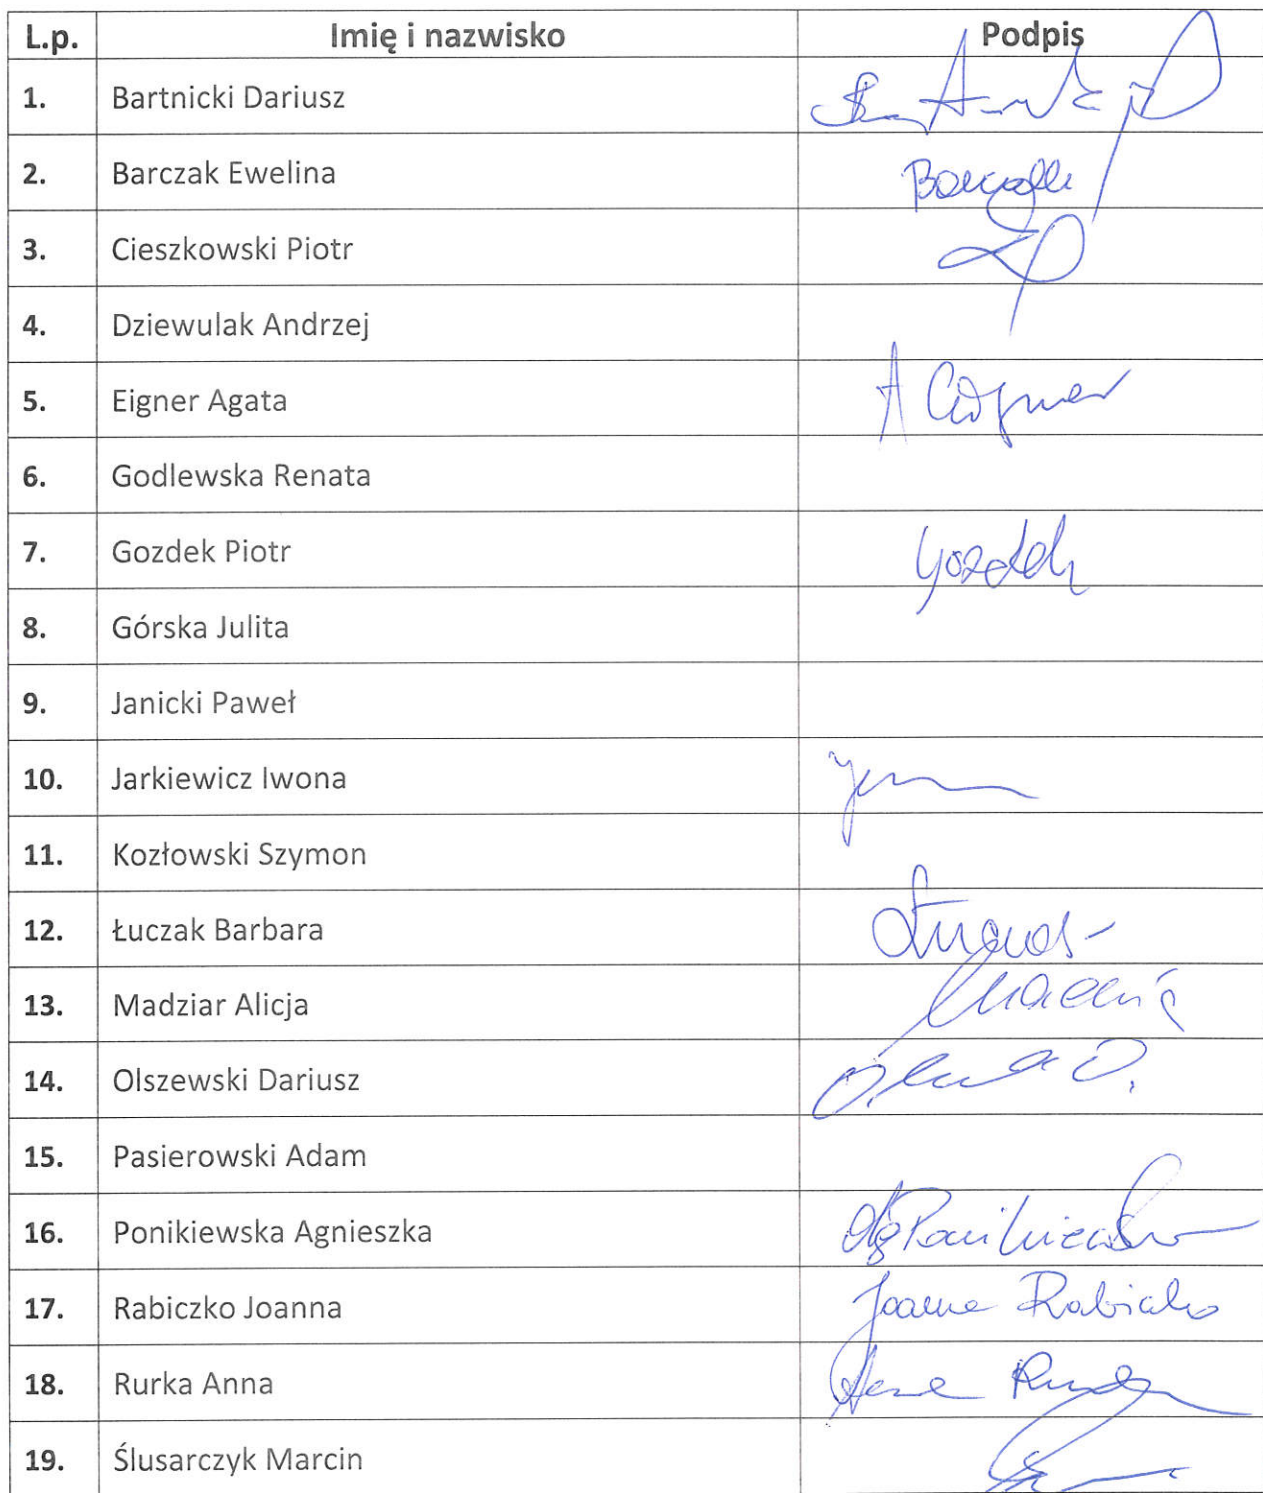 L.p. Imię i nazwisko Podpis
1. Bartnicki Dariusz
2. Barczak Ewelina
3. Cieszkowski Piotr
4. Dziewulak Andrzej
5. Eigner Agata
6. Godlewska Renata
7. Gozdek Piotr Gozdek
8. Górska Julita
9. Janicki Paweł
10. Jarkiewicz Iwona
11. Kozłowski Szymon
12. Łuczak Barbara
13. Madziar Alicja
14. Olszewski Dariusz
15. Pasierowski Adam
16. Ponikiewska Agnieszka
17. Rabiczko Joanna Joanna Rabiczko
18. Rurka Anna
19. Ślusarczyk Marcin